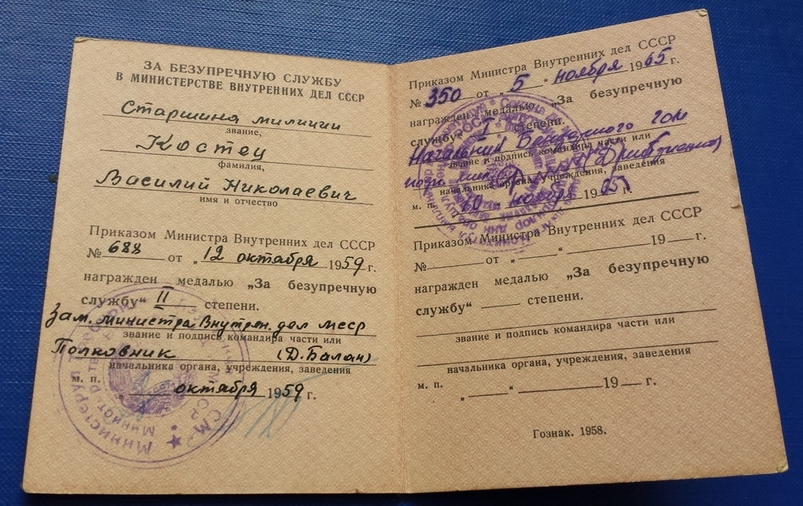 ЗА БЕЗУПРЕЧНУЮ СЛУЖБУ
В МИНИСТЕРСТВЕ ВНУТРЕННИХ ДЕЛ СССР
Старшина милиции
звание,
Костец
фамилия,
Василий Николаевич
имя и отчество
Приказом Министра Внутренних дел СССР
№ 688 от „12 октября 1959 г.
награжден медалью „За безупречную
службу“ II степени.
Зам. министра Внутрен. дел МССР
звание и подпись командира части или
Полковник (Д. Балан)
начальника органа, учреждения, заведения
м. п. „ “ октября 1959 г.
Приказом Министра Внутренних дел СССР
№ 350 от „5 “ ноября 1965 г.
награжден медалью „За безупречную
службу“ I степени.
Начальник Бендерского гом
звание и подпись командира части или
начальника органа, учреждения, заведения
м. п. 10 ноября 1965 г.
Приказом Министра Внутренних дел СССР
№ от „ “ 19 г.
награжден медалью „За безупречную
службу“ степени.
звание и подпись командира части или
начальника органа, учреждения, заведения
м. п. „ “ 19 г.
Гознак. 1958.